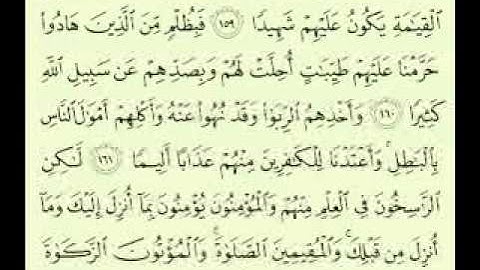 ٱلْقِيَٰمَةِ يَكُونُ عَلَيْهِمْ شَهِيدًا ١٥٩ فَبِظُلْمٍ مِّنَ ٱلَّذِينَ هَادُوا۟
حَرَّمْنَا عَلَيْهِمْ طَيِّبَٰتٍ أُحِلَّتْ لَهُمْ وَبِصَدِّهِمْ عَن سَبِيلِ ٱللَّهِ
كَثِيرًا ١٦٠ وَأَخْذِهِمُ ٱلرِّبَوٰا۟ وَقَدْ نُهُوا۟ عَنْهُ وَأَكْلِهِمْ أَمْوَٰلَ ٱلنَّاسِ
بِٱلْبَٰطِلِ ۚ وَأَعْتَدْنَا لِلْكَٰفِرِينَ مِنْهُمْ عَذَابًا أَلِيمًا ١٦١ لَّٰكِنِ
ٱلرَّٰسِخُونَ فِى ٱلْعِلْمِ مِنْهُمْ وَٱلْمُؤْمِنُونَ يُؤْمِنُونَ بِمَآ أُنزِلَ إِلَيْكَ وَمَآ
أُنزِلَ مِن قَبْلِكَ ۚ وَٱلْمُقِيمِينَ ٱلصَّلَوٰةَ ۚ وَٱلْمُؤْتُونَ ٱلزَّكَوٰةَ